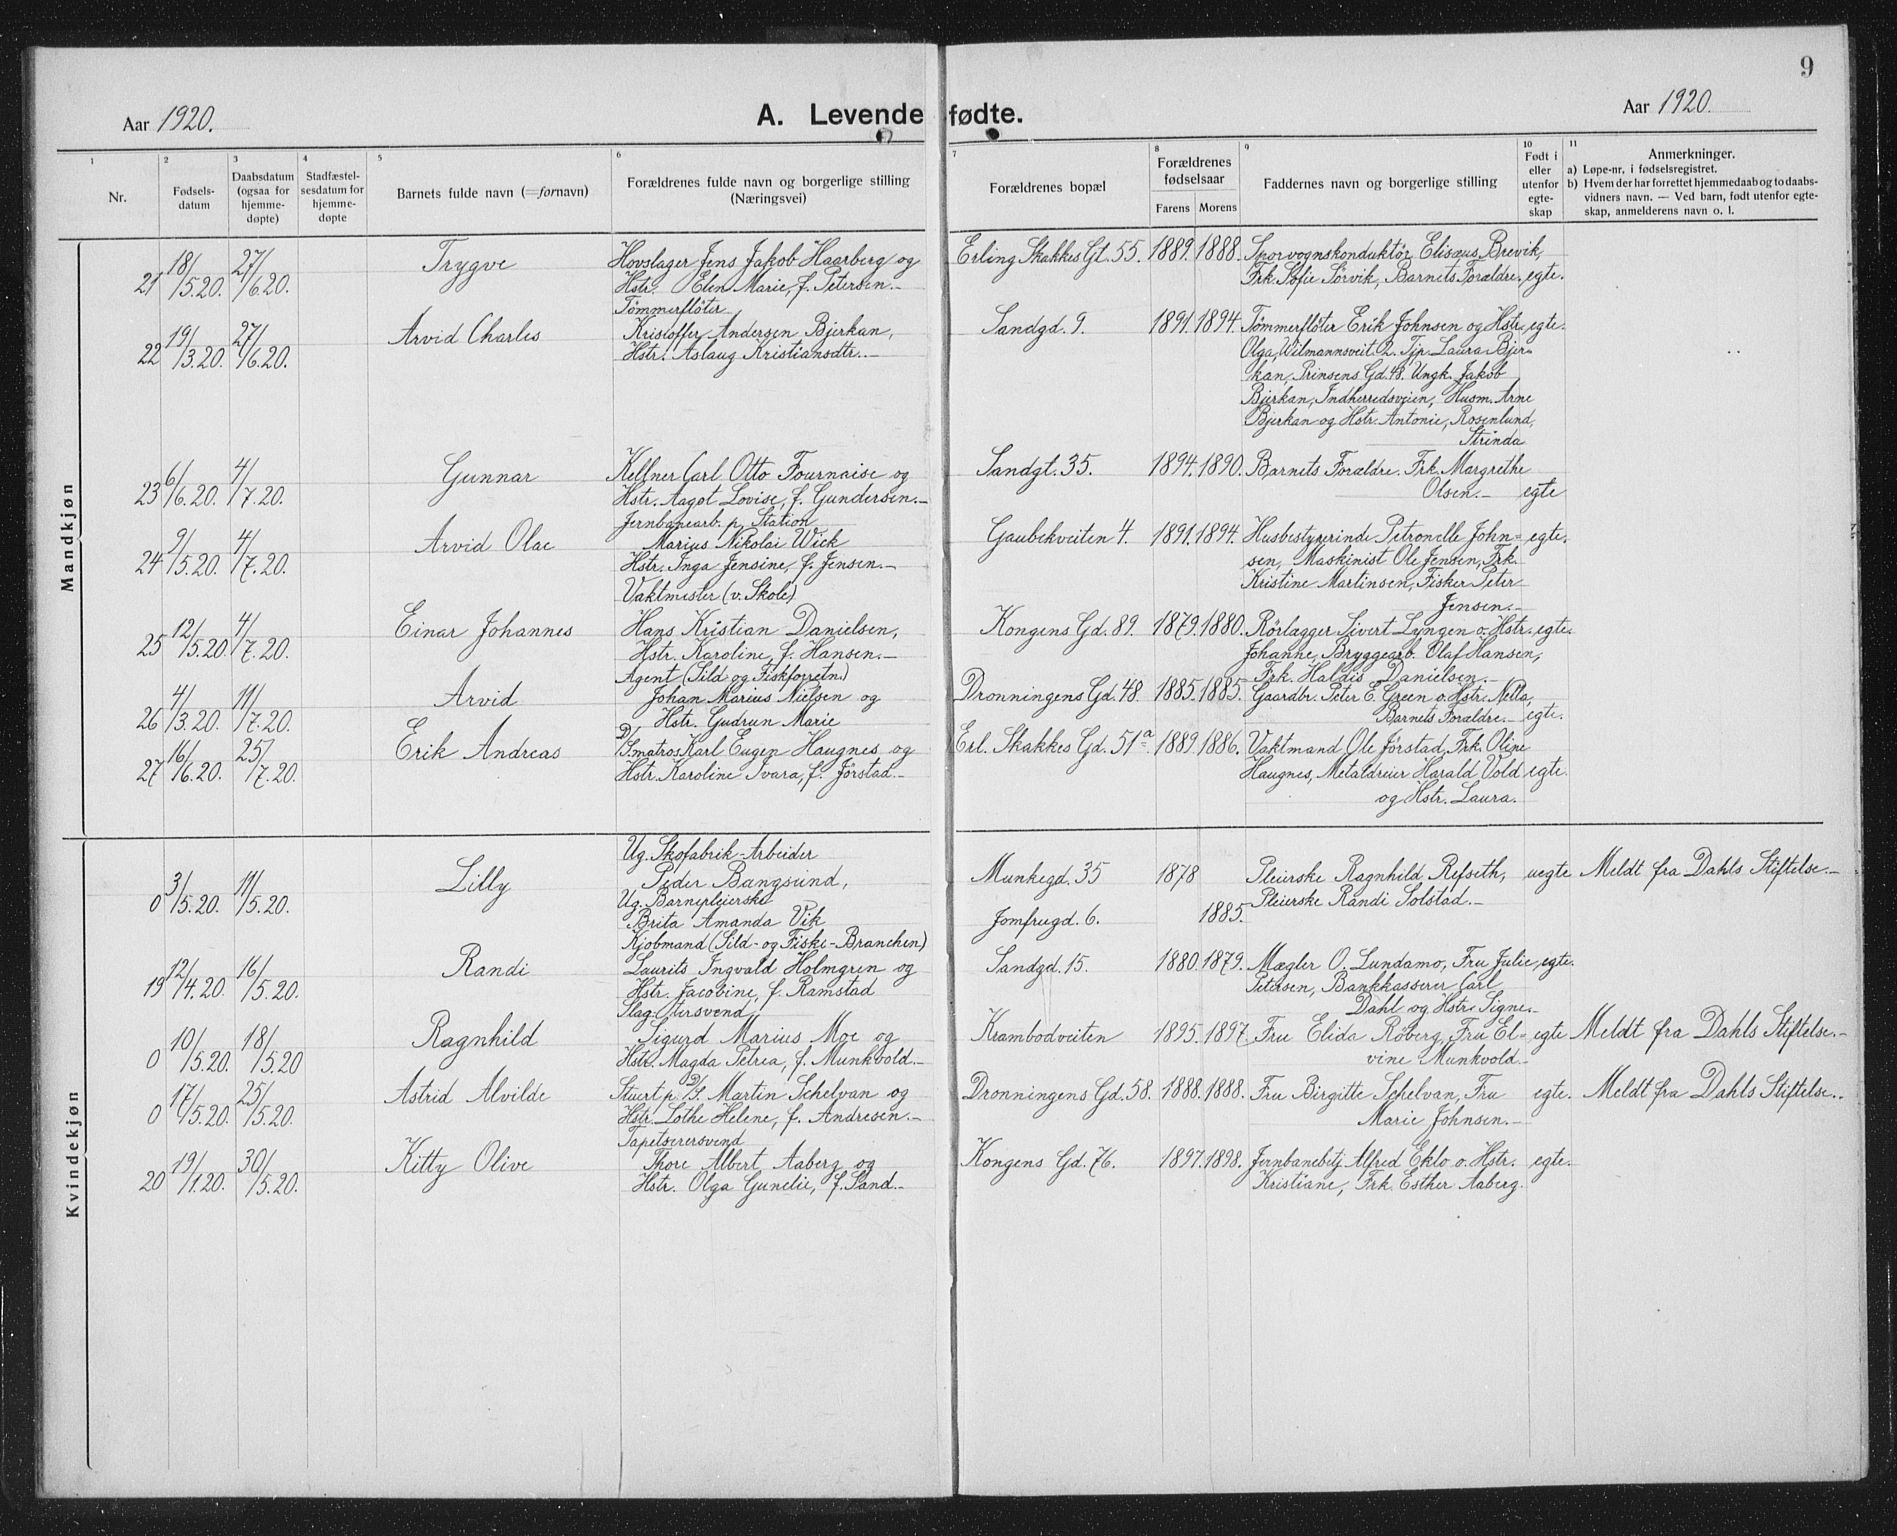 9
Aar 1920.
A. Levende fødte.
Aar 1920.
1
2
3
4
5
6
7
8
9
10
11
Nr.
Fødsels-
datum
Daabsdatum
(ogsaa for
hjemme-
døpte)
Stadfæstel-
sesdatum for
hjemme-
døpte
Barnets fulde navn (=fornavn)
Forældrenes fulde navn og borgerlige stilling
(Næringsvei)
Forældrenes bopæl
Forældrenes
fødselsaar
Farens Morens
Faddernes navn og borgerlige stilling
Født i
eller
utenfor
egte-
skap
Anmerkninger.
a) Løpe-nr. i fødselsregistret.
b) Hvem der har forrettet hjemmedaab og to daabs-
vidners navn. — Ved barn, født utenfor egte-
skap, anmelderens navn o. l.
Mandkjøn
21 18/5.20. 27/6.20.
Trygve
Hovslager Jens Jakob Haarberg og
Hstr. Elen Marie, f. Petersen.-
Erling Skakkes Gt. 55. 1889. 1888.
Sporvognskonduktör Elisæus Brevik,
Frk. Sofie Sörvik, Barnets Forældre. egte.
22 19/3.20. 27/6.20.
Arvid Charles
Tömmerflöter
Kristoffer Andersen Bjerkan,
Hstr. Aslaug Kristiansdtr..-
Sandgd. 9. 1891. 1894.
Tömmerflöter Erik Johnsen og Hstr. egte.
Olga, Wilmannsveit. 2. Tjp. Laura Bjer-
kan, Prinsens Gd. 48. Ungk. Jakob
Bjerkan, Indherredsveien, Husm. Arne
Bjerkan og Hstr. Antonie, Rosenlund,
Strinda
23 6/6.20. 4/7.20.
Gunnar
Kellner Carl Otto Fournaise og
Hstr. Aagot Lovise, f. Gundersen.-
Sandgt. 35. 1894. 1890.
Barnets Forældre. Frk. Margrethe
Olsen.- egte
24 9/5.20. 4/7.20.
Arvid Olae
Jernbanearb. p. Station
Marius Nikolai Wick
Hstr. Inga Jensine, f. Jensen.-
Gaubekveiten 4. 1891. 1894.
Husbestyrerinde Petronelle John= egte.
sen, Maskinist Ole Jensen, Frk.
Kristine Martinsen, Fisker Peter
Jensen.-
25 12/5.20. 4/7.20.
Einar Johannes
Vaktmester (v. Skole)
Hans Kristian Danielsen,
Hstr. Karoline, f. Hansen.-
Kongens Gd. 89. 1879. 1880.
Rörlægger Sivert Lyngen o. Hstr. egte.
Johanne, Bryggearb. Olaf Hansen,
Frk. Haldis Danielsen.-
26 4/3.20. 11/7.20.
Arvid
Agent (Sild og Fiskforretn.)
Johan Marius Nielsen og
Hstr. Gudrun Marie
Dronningens Gd. 48. 1885. 1885.
Gaardbr. Peter E. Green o. Hstr. Netta,
Barnets Forældre.- egte.
27 16/6.20. 25/7.20.
Erik Andreas
D/S. matros Karl Eugen Haugnes og
Hstr. Karoline Ivara, f. Jörstad.-
Erl. Skakkes Gd. 51a. 1889. 1886.
Vaktmand Ole Jörstad, Frk. Oline
Haugnes, Metaldreier Harald Vold egte.
og Hstr. Laura.
Kvindekjøn
0 3/5.20. 11/5.20.
Lilly
Ug. Skofabrik-Arbeider
Peder Bangsund,
Ug. Barnepleierske
Brita Amanda Vik
Munkegd. 35 1878
Jomfrugd. 6. 1885.
Pleierske Ragnhild Refseth, uegte Meldt fra Dahls Stiftelse.-
Pleierske Randi Solstad.-
19 12/4.20. 16/5.20.
Randi
Kjöbmand (Sild- og Fiske-Branchen)
Laurits Ingvald Holmgren og
Hstr. Jacobine, f. Ramstad
Sandgd. 15. 1880. 1879.
Mægler O. Lundamo, Fru Julie egte.
Petersen, Bankkasserer Carl
Dahl og Hstr. Signe.-
0 10/5.20. 18/5.20
Ragnhild
Slagtersvend
Sigurd Marius Moe og
Hstr. Magda Petrea, f. Munkvold.-
Krambodveiten 1895. 1897.
Fru Elida Röberg, Fru El= egte Meldt fra Dahls Stiftelse.-
vine Munkvold.-
0 17/5.20. 25/5.20.
Astrid Alvilde
Stuert p. D/S. Martin Schelvan og
Hstr. Lothe Helene, f. Andresen.-
Dronningens Gd. 58. 1888. 1888.
Fru Birgitte Schelvan, Fru egte. Meldt fra Dahls Stiftelse..
Marie Johnsen.-
20 19/1.20. 30/5.20.
Kitty Olive
Tapetserersvend
Thore Albert Aaberg og
Hstr. Olga Gunelie, f. Sand.-
Kongens Gd. 76. 1897. 1898.
Jernbanebetj. Alfred Eklo o. Hstr. egte.
Kristiane, Frk. Esther Aaberg.